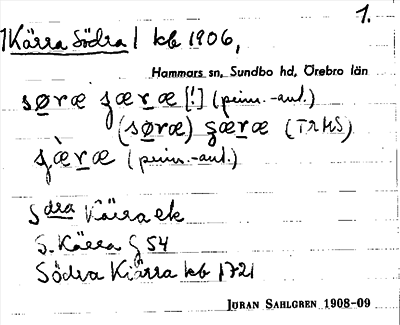 1.
Kärra Södra | kb 1906,
Hammars sn, Sundbo hd, Örebro län
søræ ʃæræ [!] (prim.-ant.)
(søræ) ʂæræ (TRHS)
ʃæ̀ræ (prim.-ant.)
Sdra Kärra ek
S. Kärra G 54
Södra Kiärra kb 1721
JÖRAN SAHLGREN 1908-09